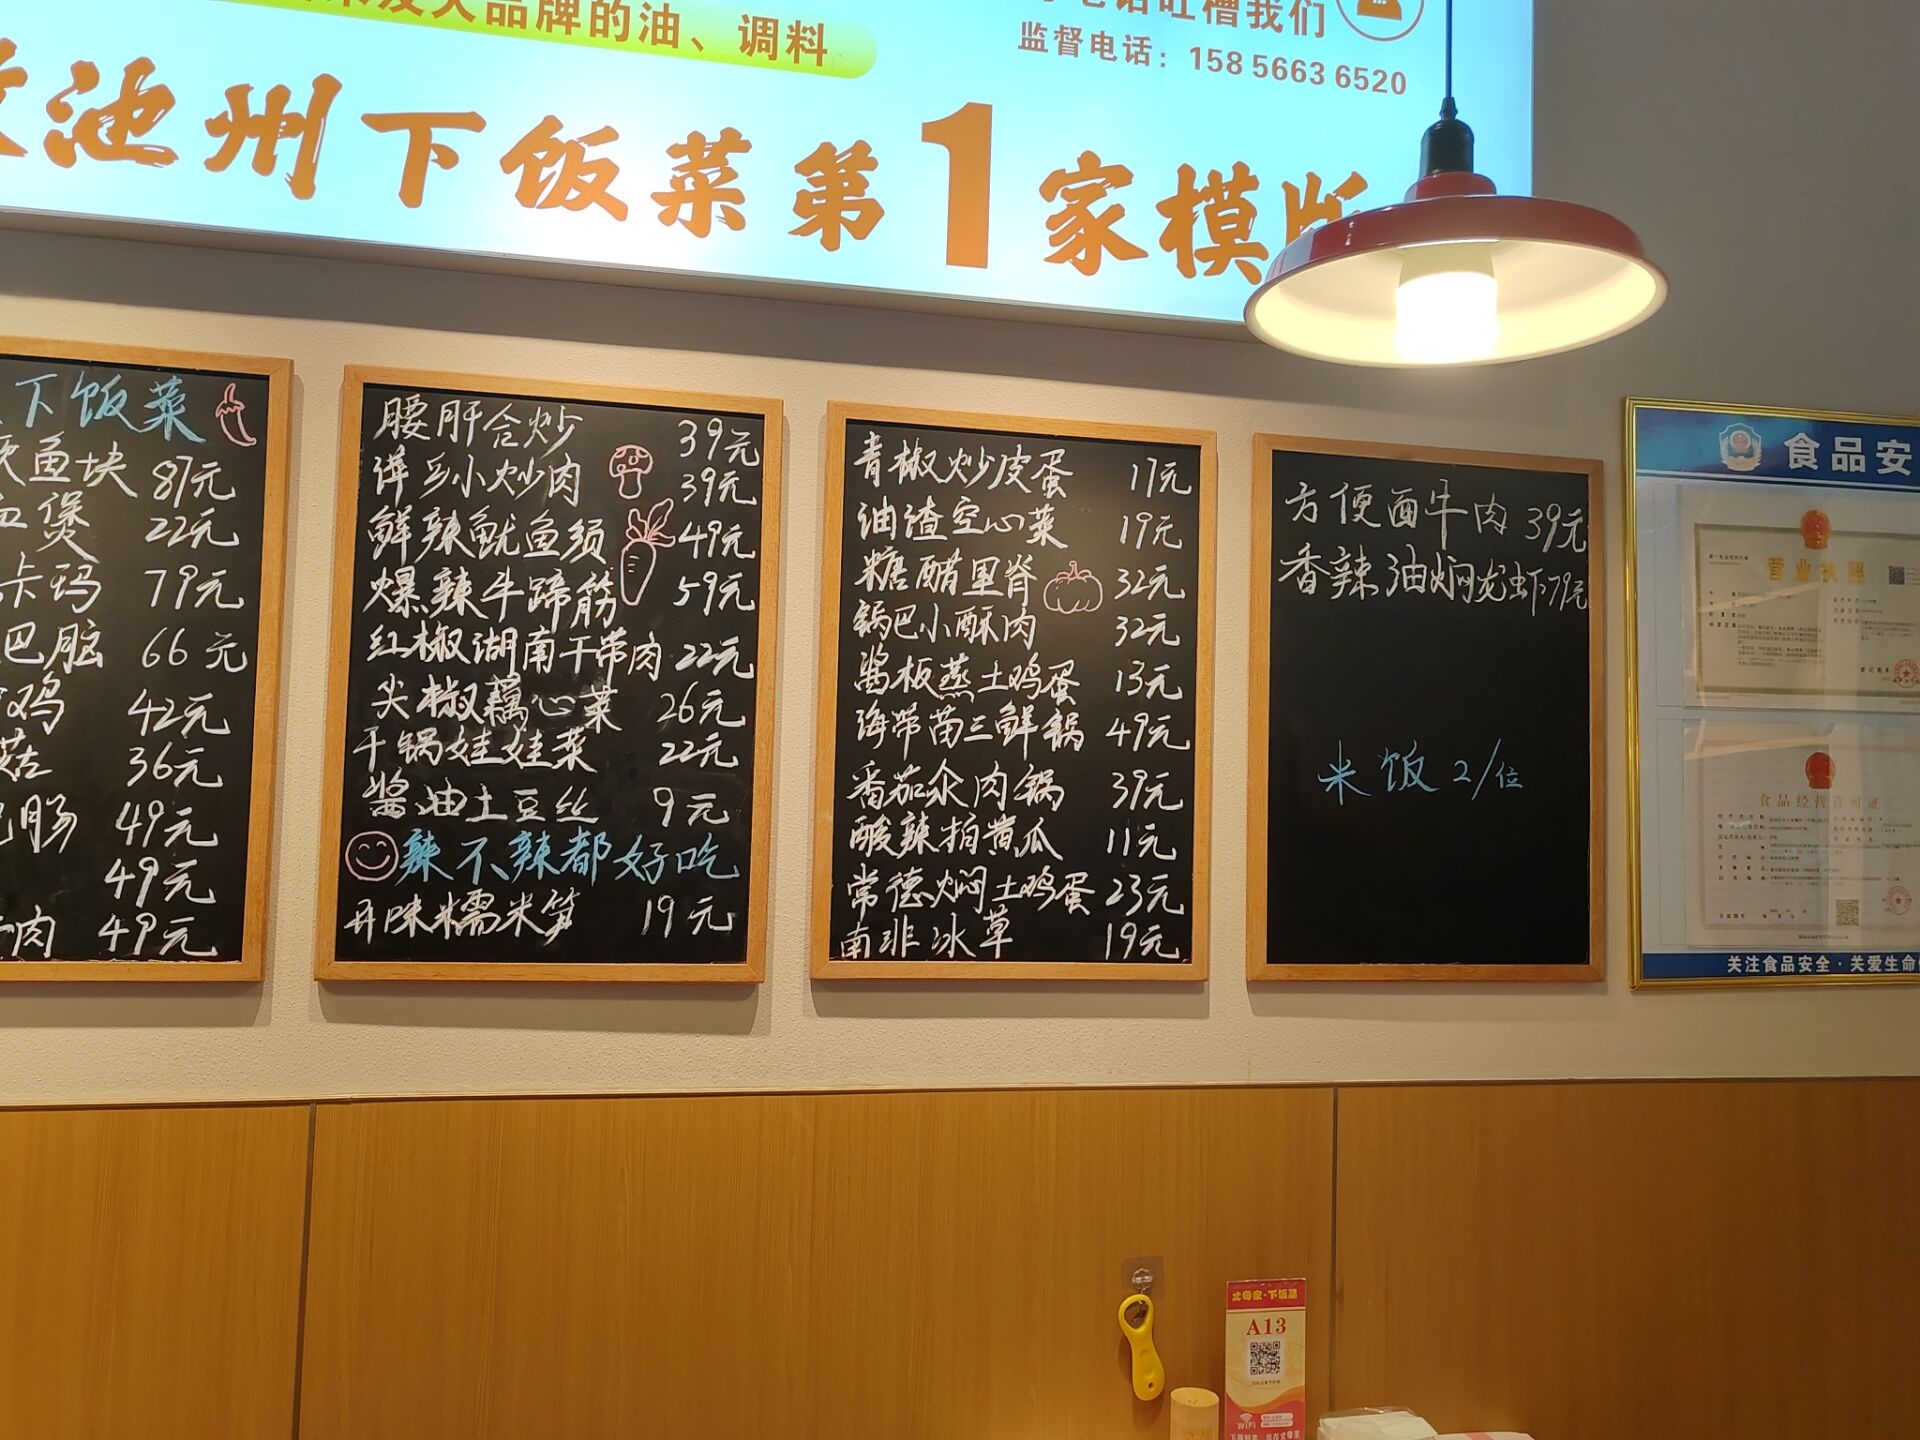 大品牌的油、调料
电话吐槽我们
监督电话：158 5663 6520
池州下饭菜第1家模版
下饭菜
鱼块 87元
煲 22元
卡玛 79元
巴脑 66元
鸡 42元
菇 36元
肥肠 49元
49元
肉 49元
腰肝合炒 39元
萍乡小炒肉 39元
鲜辣鱿鱼须 49元
爆辣牛蹄筋 59元
红椒湖南干带肉 22元
尖椒藕心菜 26元
干锅娃娃菜 22元
酱油土豆丝 9元
辣不辣都好吃
开味糯米笋 19元
青椒炒皮蛋 17元
油渣空心菜 19元
糖醋里脊 32元
锅巴小酥肉 32元
酱板蒸土鸡蛋 13元
海带苗三鲜锅 49元
番茄汆肉锅 39元
酸辣拍黄瓜 11元
常德焖土鸡蛋 23元
南非冰草 19元
方便面牛肉 39元
香辣油焖龙虾 79元
米饭 2/位
食品安
营业执照
食品经营许可证
关注食品安全·关爱生命
丈母家·下饭菜
A13
WiFi